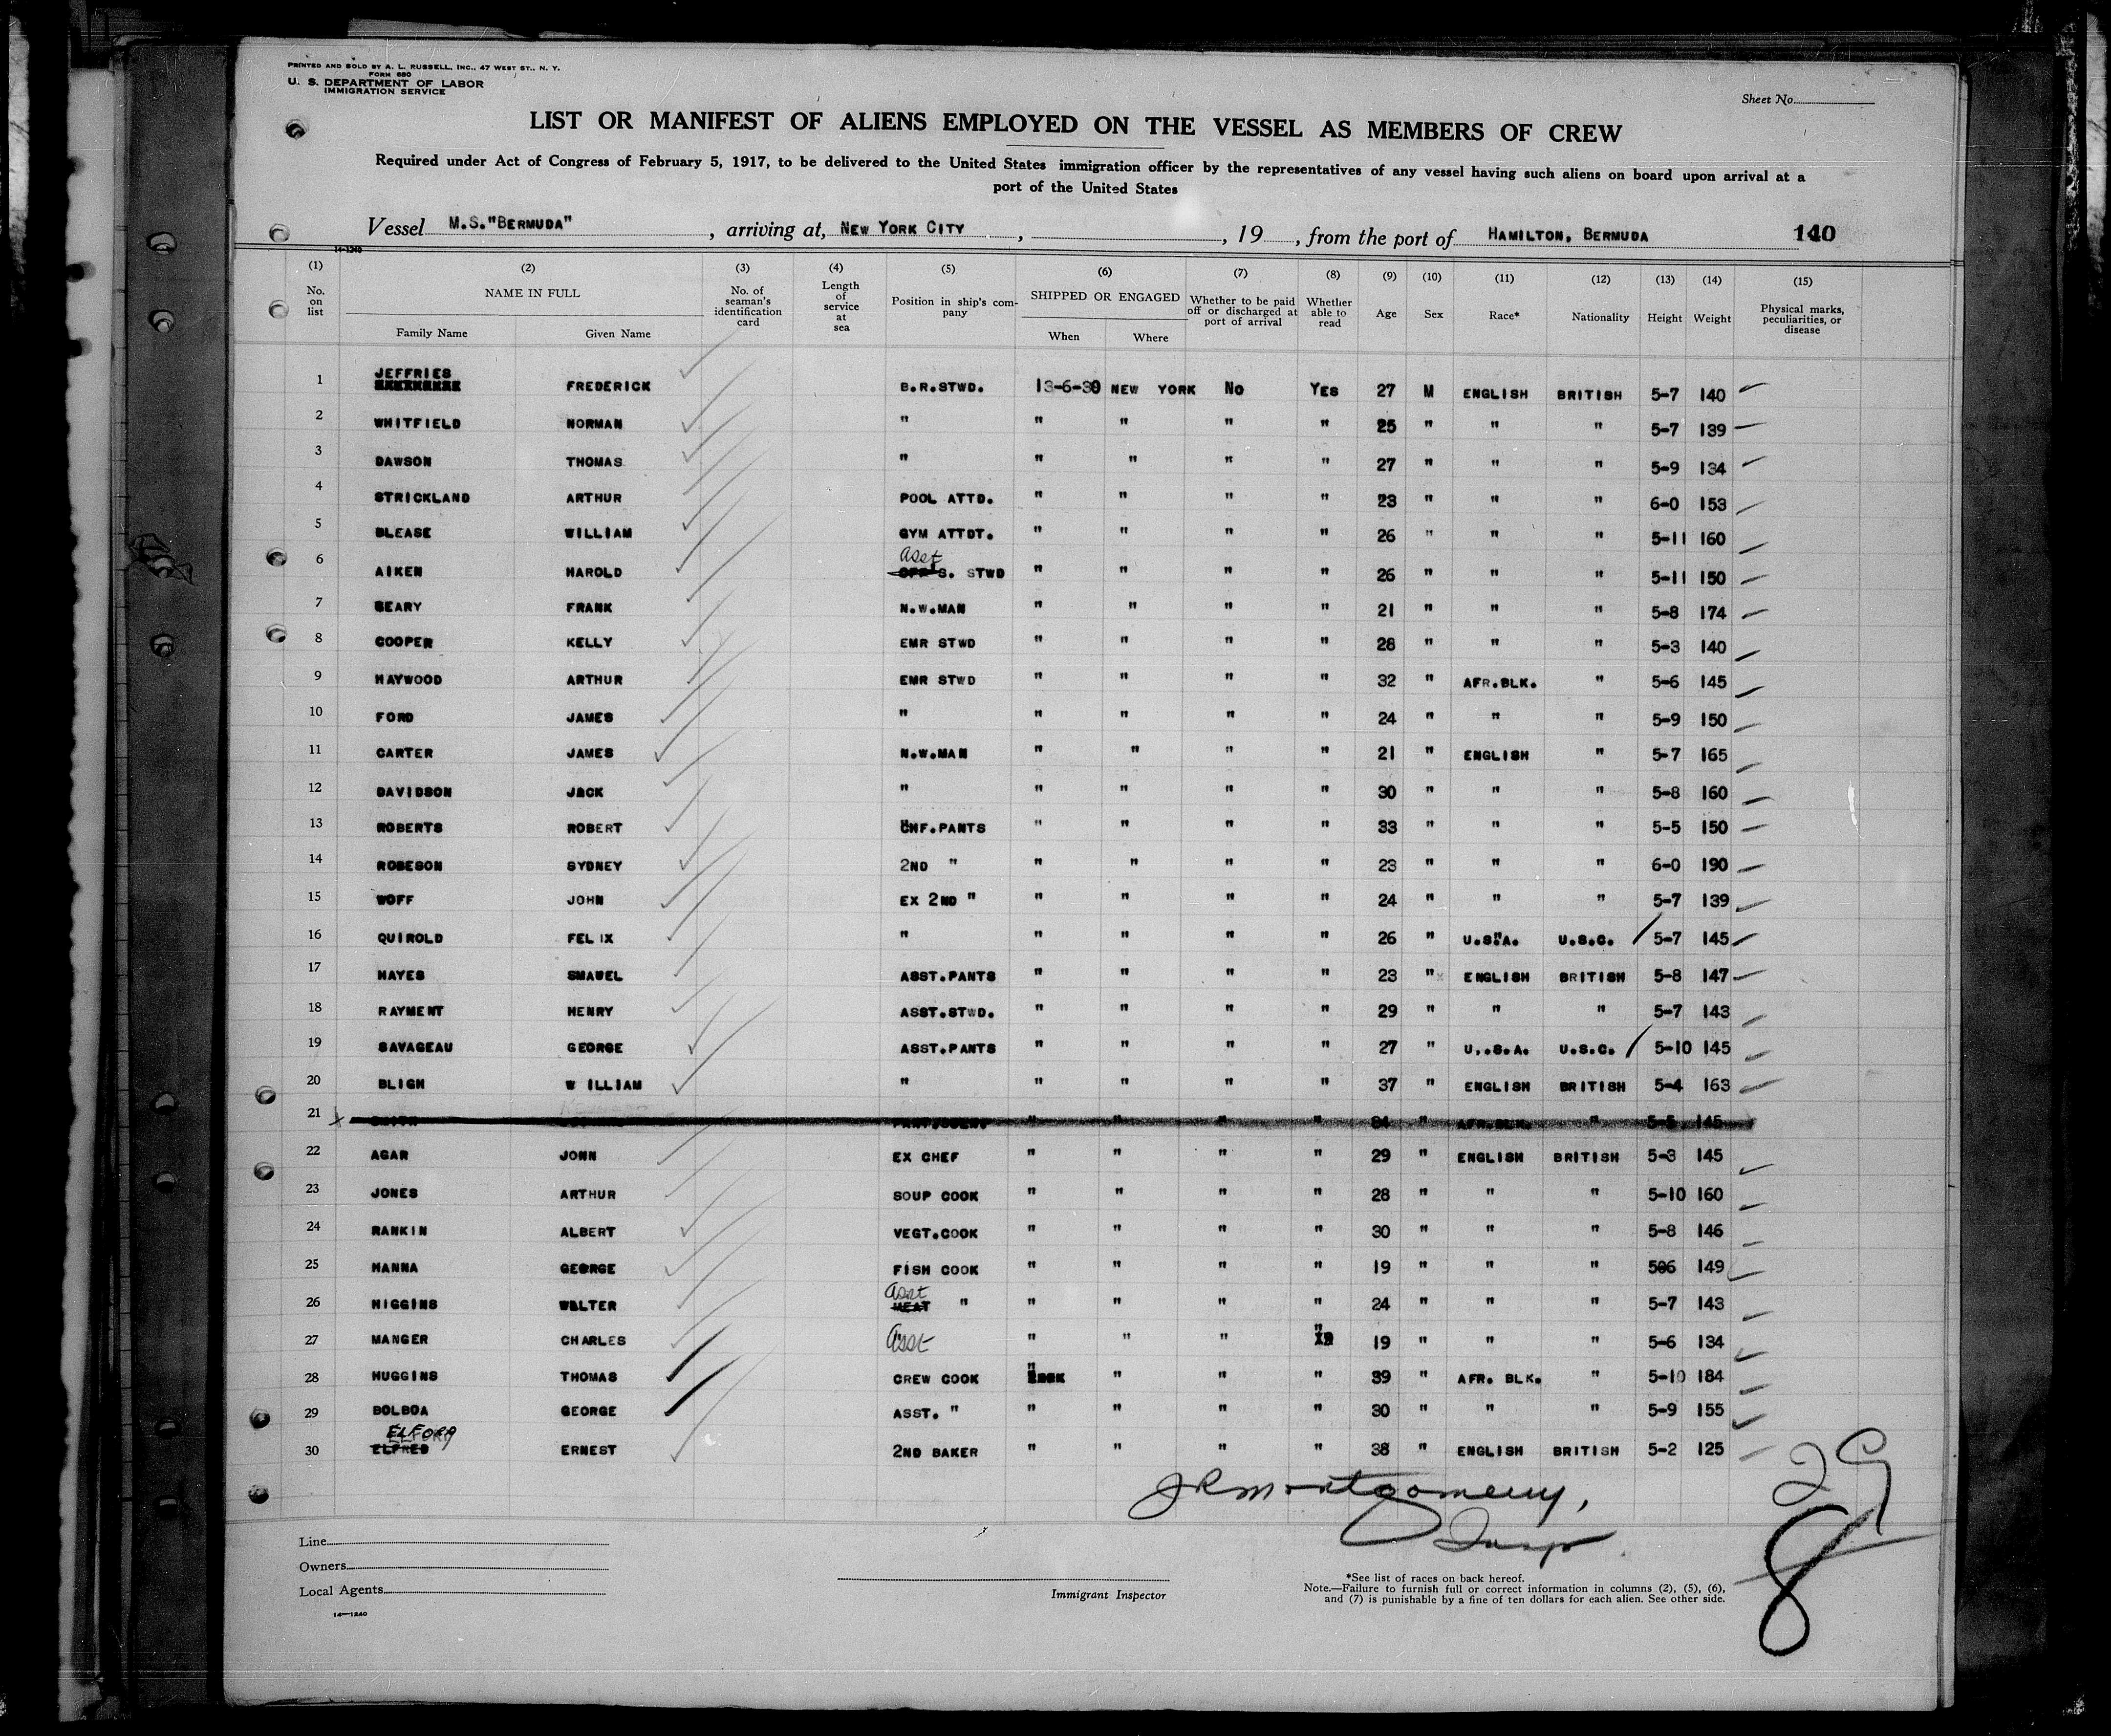 PRINTED AND SOLD BY A. L. RUSSELL, INC., 47 WEST ST., N. Y.
FORM 680
U. S. DEPARTMENT OF LABOR
IMMIGRATION SERVICE
Sheet No.
LIST OR MANIFEST OF ALIENS EMPLOYED ON THE VESSEL AS MEMBERS OF CREW
Required under Act of Congress of February 5, 1917, to be delivered to the United States immigration officer by the representatives of any vessel having such aliens on board upon arrival at a
port of the United States
Vessel M.S."BERMUDA", arriving at, NEW YORK CITY, , 19 , from the port of HAMILTON, BERMUDA 140
14-1240
(1) (2) (3) (4) (5) (6) (7) (8) (9) (10) (11) (12) (13) (14) (15)
No. on list NAME IN FULL Family Name Given Name No. of seaman's identification card Length of service at sea Position in ship's company SHIPPED OR ENGAGED When Where Whether to be paid off or discharged at port of arrival Whether able to read Age Sex Race* Nationality Height Weight Physical marks, peculiarities, or disease
1 JEFFRIES FREDERICK B.R.STWD. 13-6-30 NEW YORK NO YES 27 M ENGLISH BRITISH 5-7 140
2 WHITFIELD NORMAN " " " " " 25 " " " 5-7 139
3 DAWSON THOMAS " " " " " 27 " " " 5-9 134
4 STRICKLAND ARTHUR POOL ATTD. " " " " 23 " " " 6-0 153
5 BLEASE WILLIAM GYM ATTDT. " " " " 26 " " " 5-11 160
6 AIKEN HAROLD Asst S. STWD " " " " 26 " " " 5-11 150
7 BEARY FRANK N.W.MAN " " " " 21 " " " 5-8 174
8 COOPER KELLY EMR STWD " " " " 28 " " " 5-3 140
9 HAYWOOD ARTHUR EMR STWD " " " " 32 " AFR.BLK. " 5-6 145
10 FORD JAMES " " " " " 24 " " " 5-9 150
11 CARTER JAMES N.W.MAN " " " " 21 " ENGLISH " 5-7 165
12 DAVIDSON JACK " " " " " 30 " " " 5-8 160
13 ROBERTS ROBERT CHF.PANTS " " " " 33 " " " 5-5 150
14 ROBESON SYDNEY 2ND " " " " " 23 " " " 6-0 190
15 WOFF JOHN EX 2ND " " " " " 24 " " " 5-7 139
16 QUIROLD FELIX " " " " " 26 " U.S.A. U.S.C. 5-7 145
17 HAYES SMAUEL ASST.PANTS " " " " 23 " ENGLISH BRITISH 5-8 147
18 RAYMENT HENRY ASST.STWD. " " " " 29 " " " 5-7 143
19 SAVAGEAU GEORGE ASST.PANTS " " " " 27 " U..S.A. U.S.C. 5-10 145
20 BLIGH W ILLIAM " " " " " 37 " ENGLISH BRITISH 5-4 163
21 " " " " " AFR.BLK. " 145
22 AGAR JOHN EX CHEF " " " " 29 " ENGLISH BRITISH 5-3 145
23 JONES ARTHUR SOUP COOK " " " " 28 " " " 5-10 160
24 RANKIN ALBERT VEGT.COOK " " " " 30 " " " 5-8 146
25 HANNA GEORGE FISH COOK " " " " 19 " " " 506 149
26 HIGGINS WALTER Asst MEAT " " " " " 24 " " " 5-7 143
27 MANGER CHARLES Asst " " " " 19 " " " 5-6 134
28 HUGGINS THOMAS CREW COOK " " " " 39 " AFR. BLK. " 5-10 184
29 BOLBOA GEORGE ASST. " " " " " 30 " " " 5-9 155
30 ELFRED ELFORD ERNEST 2ND BAKER " " " " 38 " ENGLISH BRITISH 5-2 125
JRMontgomery,
Insp.
29
8
Line
Owners
Local Agents
14—1240
Immigrant Inspector
*See list of races on back hereof.
Note.—Failure to furnish full or correct information in columns (2), (5), (6),
and (7) is punishable by a fine of ten dollars for each alien. See other side.